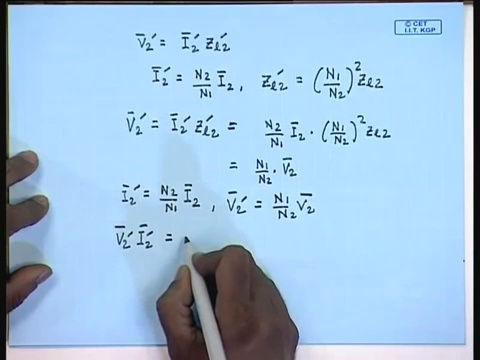 © CET
I.I.T. KGP
V̄₂′ = Ī₂′ Zₗ₂′
Ī₂′ = N₂/N₁ Ī₂ , Zₗ₂′ = (N₁/N₂)² Zₗ₂
V̄₂′ = Ī₂′ Zₗ₂′ = N₂/N₁ Ī₂ · (N₁/N₂)² Zₗ₂
= N₁/N₂ · V̄₂
Ī₂′ = N₂/N₁ Ī₂ , V̄₂′ = N₁/N₂ V̄₂
V̄₂′ Ī₂′ =